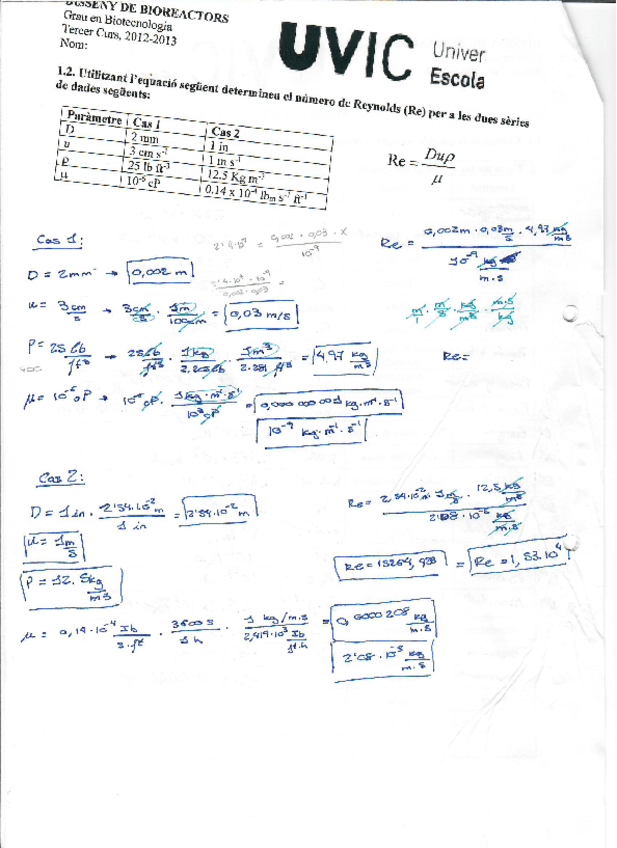 DISSENY DE BIOREACTORS
Grau en Biotecnologia
Tercer Curs, 2012-2013
Nom:
UVIC Univer
Escola
1.2. Utilitzant l'equació següent determineu el número de Reynolds (Re) per a les dues sèries
de dades següents:
Paràmetre Cas 1 Cas 2
D 2 mm 1 in
u 3 cm s⁻¹ 1 m s⁻¹
ρ 25 lb ft⁻³ 12.5 Kg m⁻³
μ 10⁻⁶ cP 0.14 x 10⁻⁴ lbm s⁻¹ ft⁻¹
Re = Duρ / μ
Cas 1:
2'4·10⁴ = 0,002 · 0,03 · x / 10⁻⁹
Re = 0,002m · 0,03 m/s · 4,97 kg/m3 / 10⁻⁹ kg / m·s
D = 2mm → 0,002 m
u = 3 cm/s → 3cm/s · 1m/100cm = 0,03 m/s
m/1 · m/s · kg/m3 · m·s/kg
ρ = 25 lb/ft³ → 25lb/ft³ · 1kg/2.205lb · 1m³ = 4,97 kg/m3
Re=
μ = 10⁻⁶ cP → 10⁻⁶ cP · 1kg·m⁻¹·s⁻¹/10³ cP = 0,000 000 001 kg·m⁻¹·s⁻¹
10⁻⁹ kg·m⁻¹·s⁻¹
Cas 2:
D = 1 in · 2'54·10⁻² m / 1 in = 2'54·10⁻² m
Re = 2,54·10⁻² m · 1m/s · 12,5 kg/m3 / kg/m·s
u = 1m/s
Re = 15264,423 = Re = 1,53·10⁴
ρ = 12.5kg/m3
μ = 0,14·10⁻⁴ lb/s·ft · 3600 s/1 h · 1 kg/m·s / 2,419·10³ lb/ft·h = 0,0000208 kg/m·s
2'08·10⁻⁵ kg/m·s